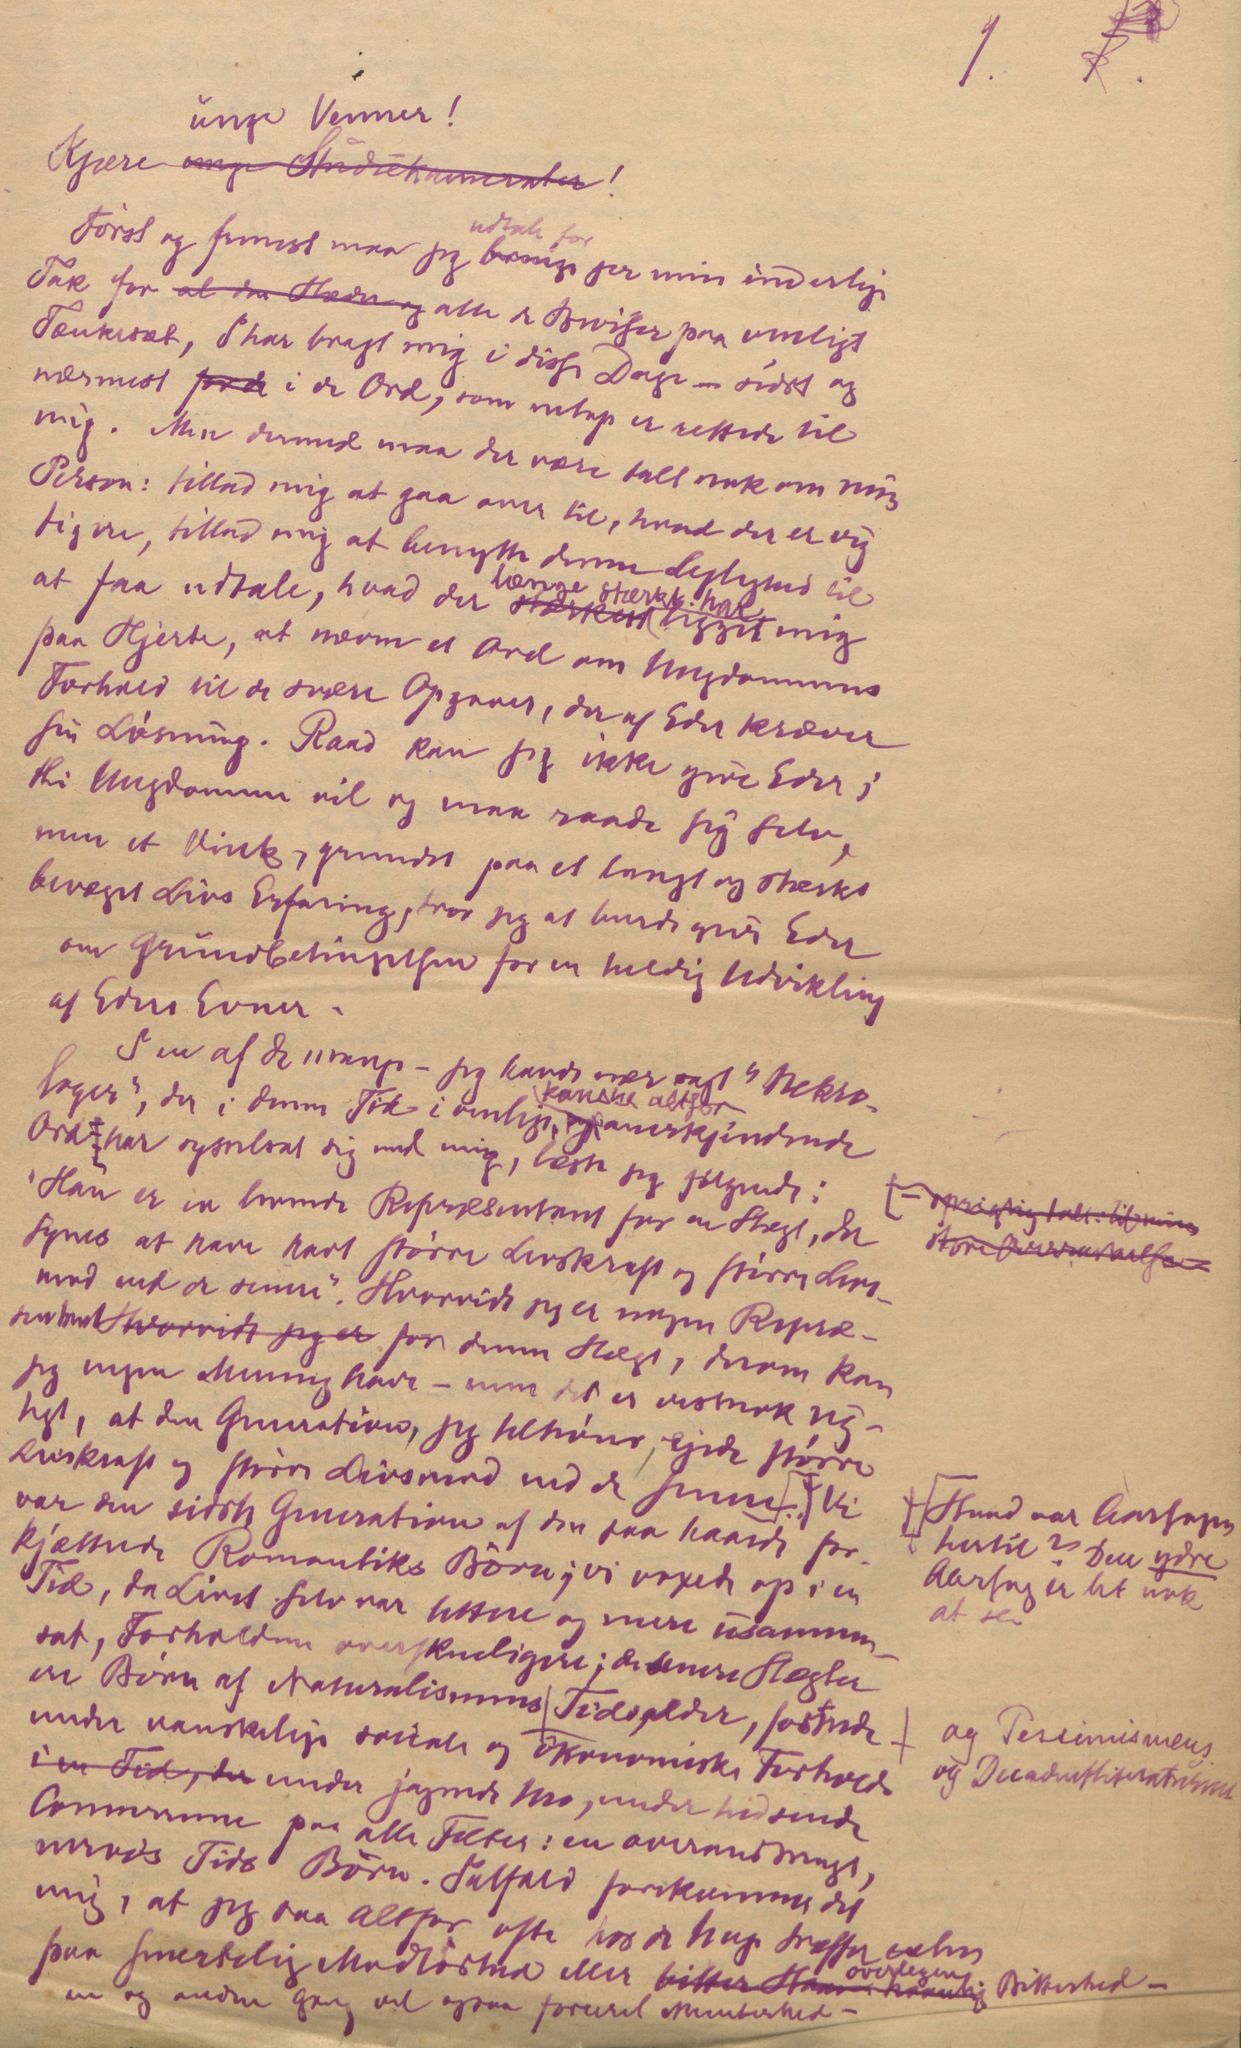 1.
unge Venner!
Kjære unge Studiekamerater!
Først og fremst maa jeg bringe jer min inderlige
udtale for
Tak for al den Hæder og alle de Beviser paa venligt
Tænkesæt, I har bragt mig i disse Dage — sidst og
nærmest for de i de Ord, som netop er rettede til
mig. Men dermed maa der være talt nok om min
Person: tillad mig at gaa over til, hvad der er vig
tigere, tillad mig at benytte denne Leilighed til
at faa udtale, hvad der stærkest ligget mig
længe stærkt har
paa Hjerte, at nævne et Ord om Ungdommens
Forhold til de svære Opgaver, der af Eder kræver
sin Løsning. Raad kan jeg ikke give Eder;
thi Ungdommen vil og maa raade sig selv,
men et Vink, grundet paa et langt og stærkt
bevæget Livs Erfaring, tror jeg at burde give Eder
om Grundbetingelsen for en heldig Udvikling
af Eders Evner.
I en af de mange — jeg havde nær sagt "Nekro-
loger", der i denne Tid i venlige, og anerkjendende
kanske altfor
Ord har sysselsat sig med mig, læste jeg følgende:
"Han er en levende Repræsentant for en Slægt, der
— oprigtig talt: til min
store
synes at have havt større Livskraft og større Livs-
mod end de senere". Hvorvidt jeg er nogen Repræ-
sentant Hvorvidt jeg er for denne Slægt, derom kan
jeg ingen Mening have — men det er vistnok rig-
tigt, at den Generation, jeg tilhører, ejede større
Livskraft og større Livsmod end de senere. Vi
Hvad var Aarsagen
hertil? Den ydre
Aarsag er let nok
at se
var den sidste Generation af den saa haardt for-
kjættrede Romantiks Børn; vi voxede op i en
Tid, da Livet selv var lettere og mere usammen-
sat, Forholdene overskueligere; de senere Slægter
ere Børn af Naturalismens Tidsalder, fostrede
og Pessimismens
og Decadentliteraturens
under vanskelige sociale og økonomiske Forhold
i en Tid, der under jagende Uro, under hidsende
Concurrence paa alle Felter: en overanstrengt,
nervøs Tids Børn. Ialfald forekommer det
mig, at jeg saa altfor ofte hos de Unge træffer enten
paa smertelig Modløshed eller bitter Haan haanlig Bitterhed —
overlegen
en og anden Gang vel ogsaa forceret Munterhed —